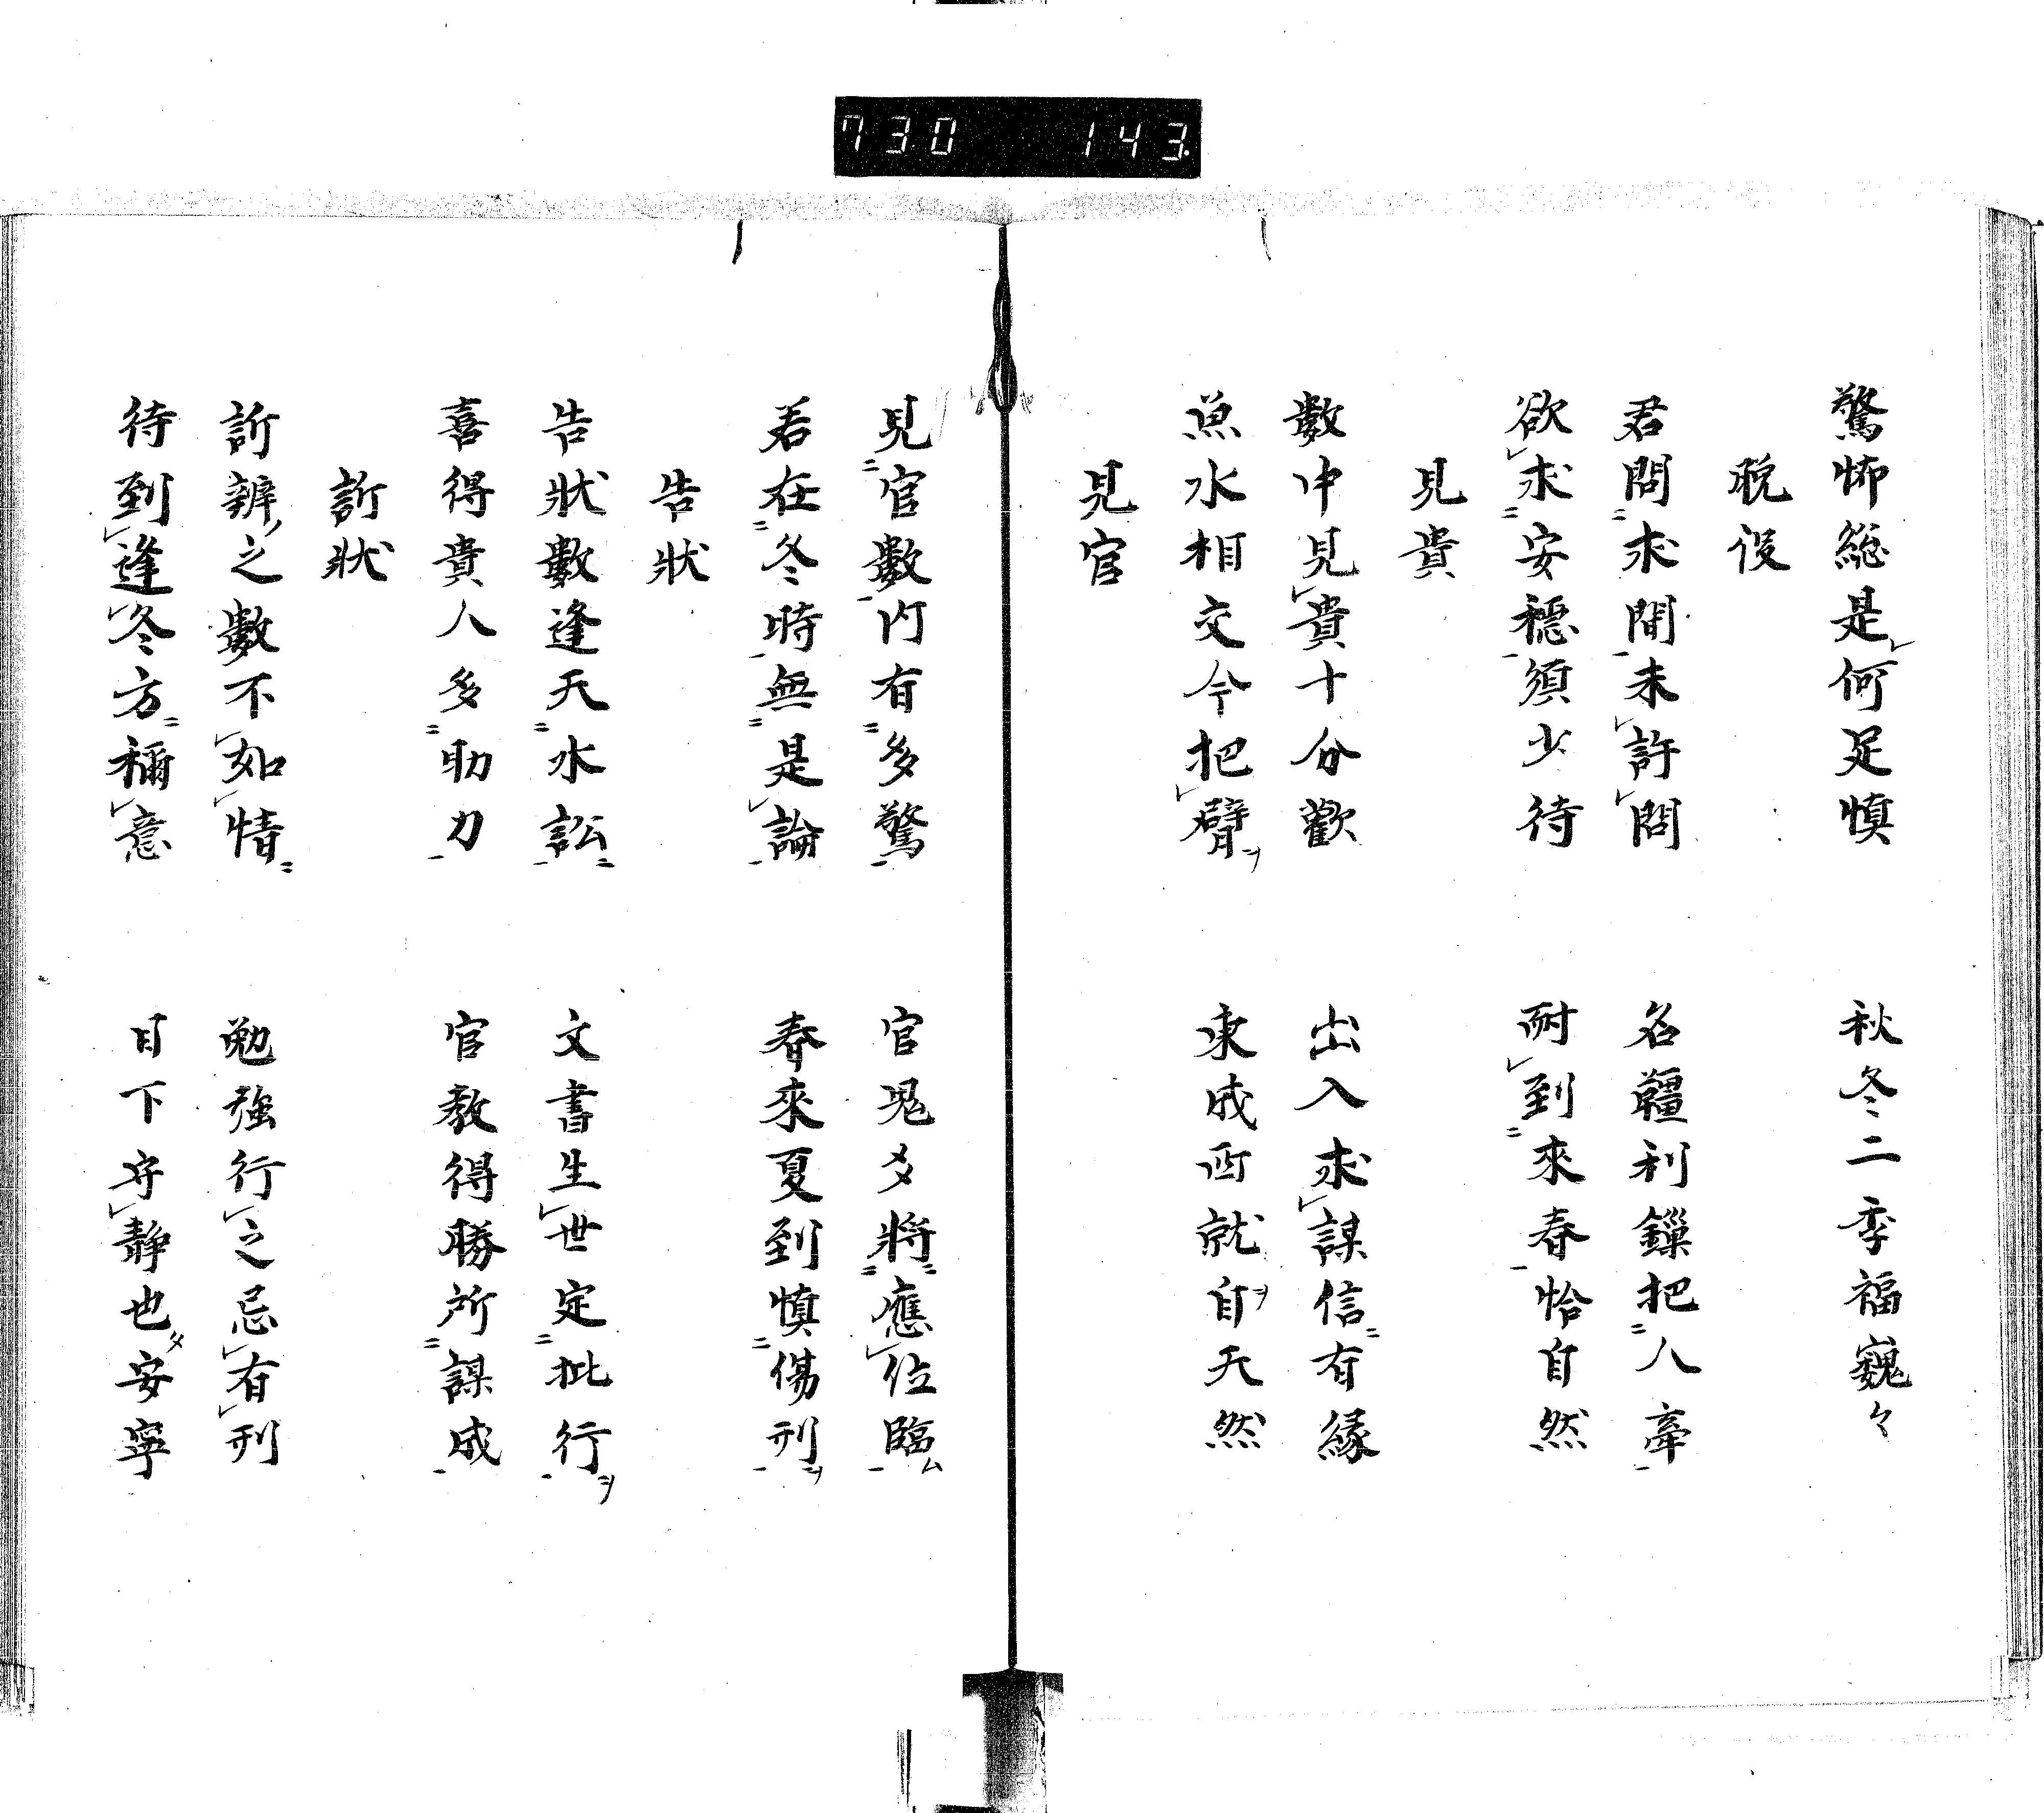 730 143
驚怖総是何足慎 秋冬二季福巍々
脱役
君問求間未許問 名韁利鏁把人牽
欲求安穏須少待 耐到來春恰自然
見貴
數中見貴十分歡 出入求謀信有縁
魚水相交今把臂 東成西就自天然
見官
見官數内有多驚 官鬼爻將應位臨
若在冬時無是論 春來夏到慎傷刑
告状
告状數逢天水訟 文書生世定批行
喜得貴人多助力 官教得勝所謀成
訴状
訴辨之數不如情 勉強行之忌有刑
待到逢冬方稱意 目下守静也安寧